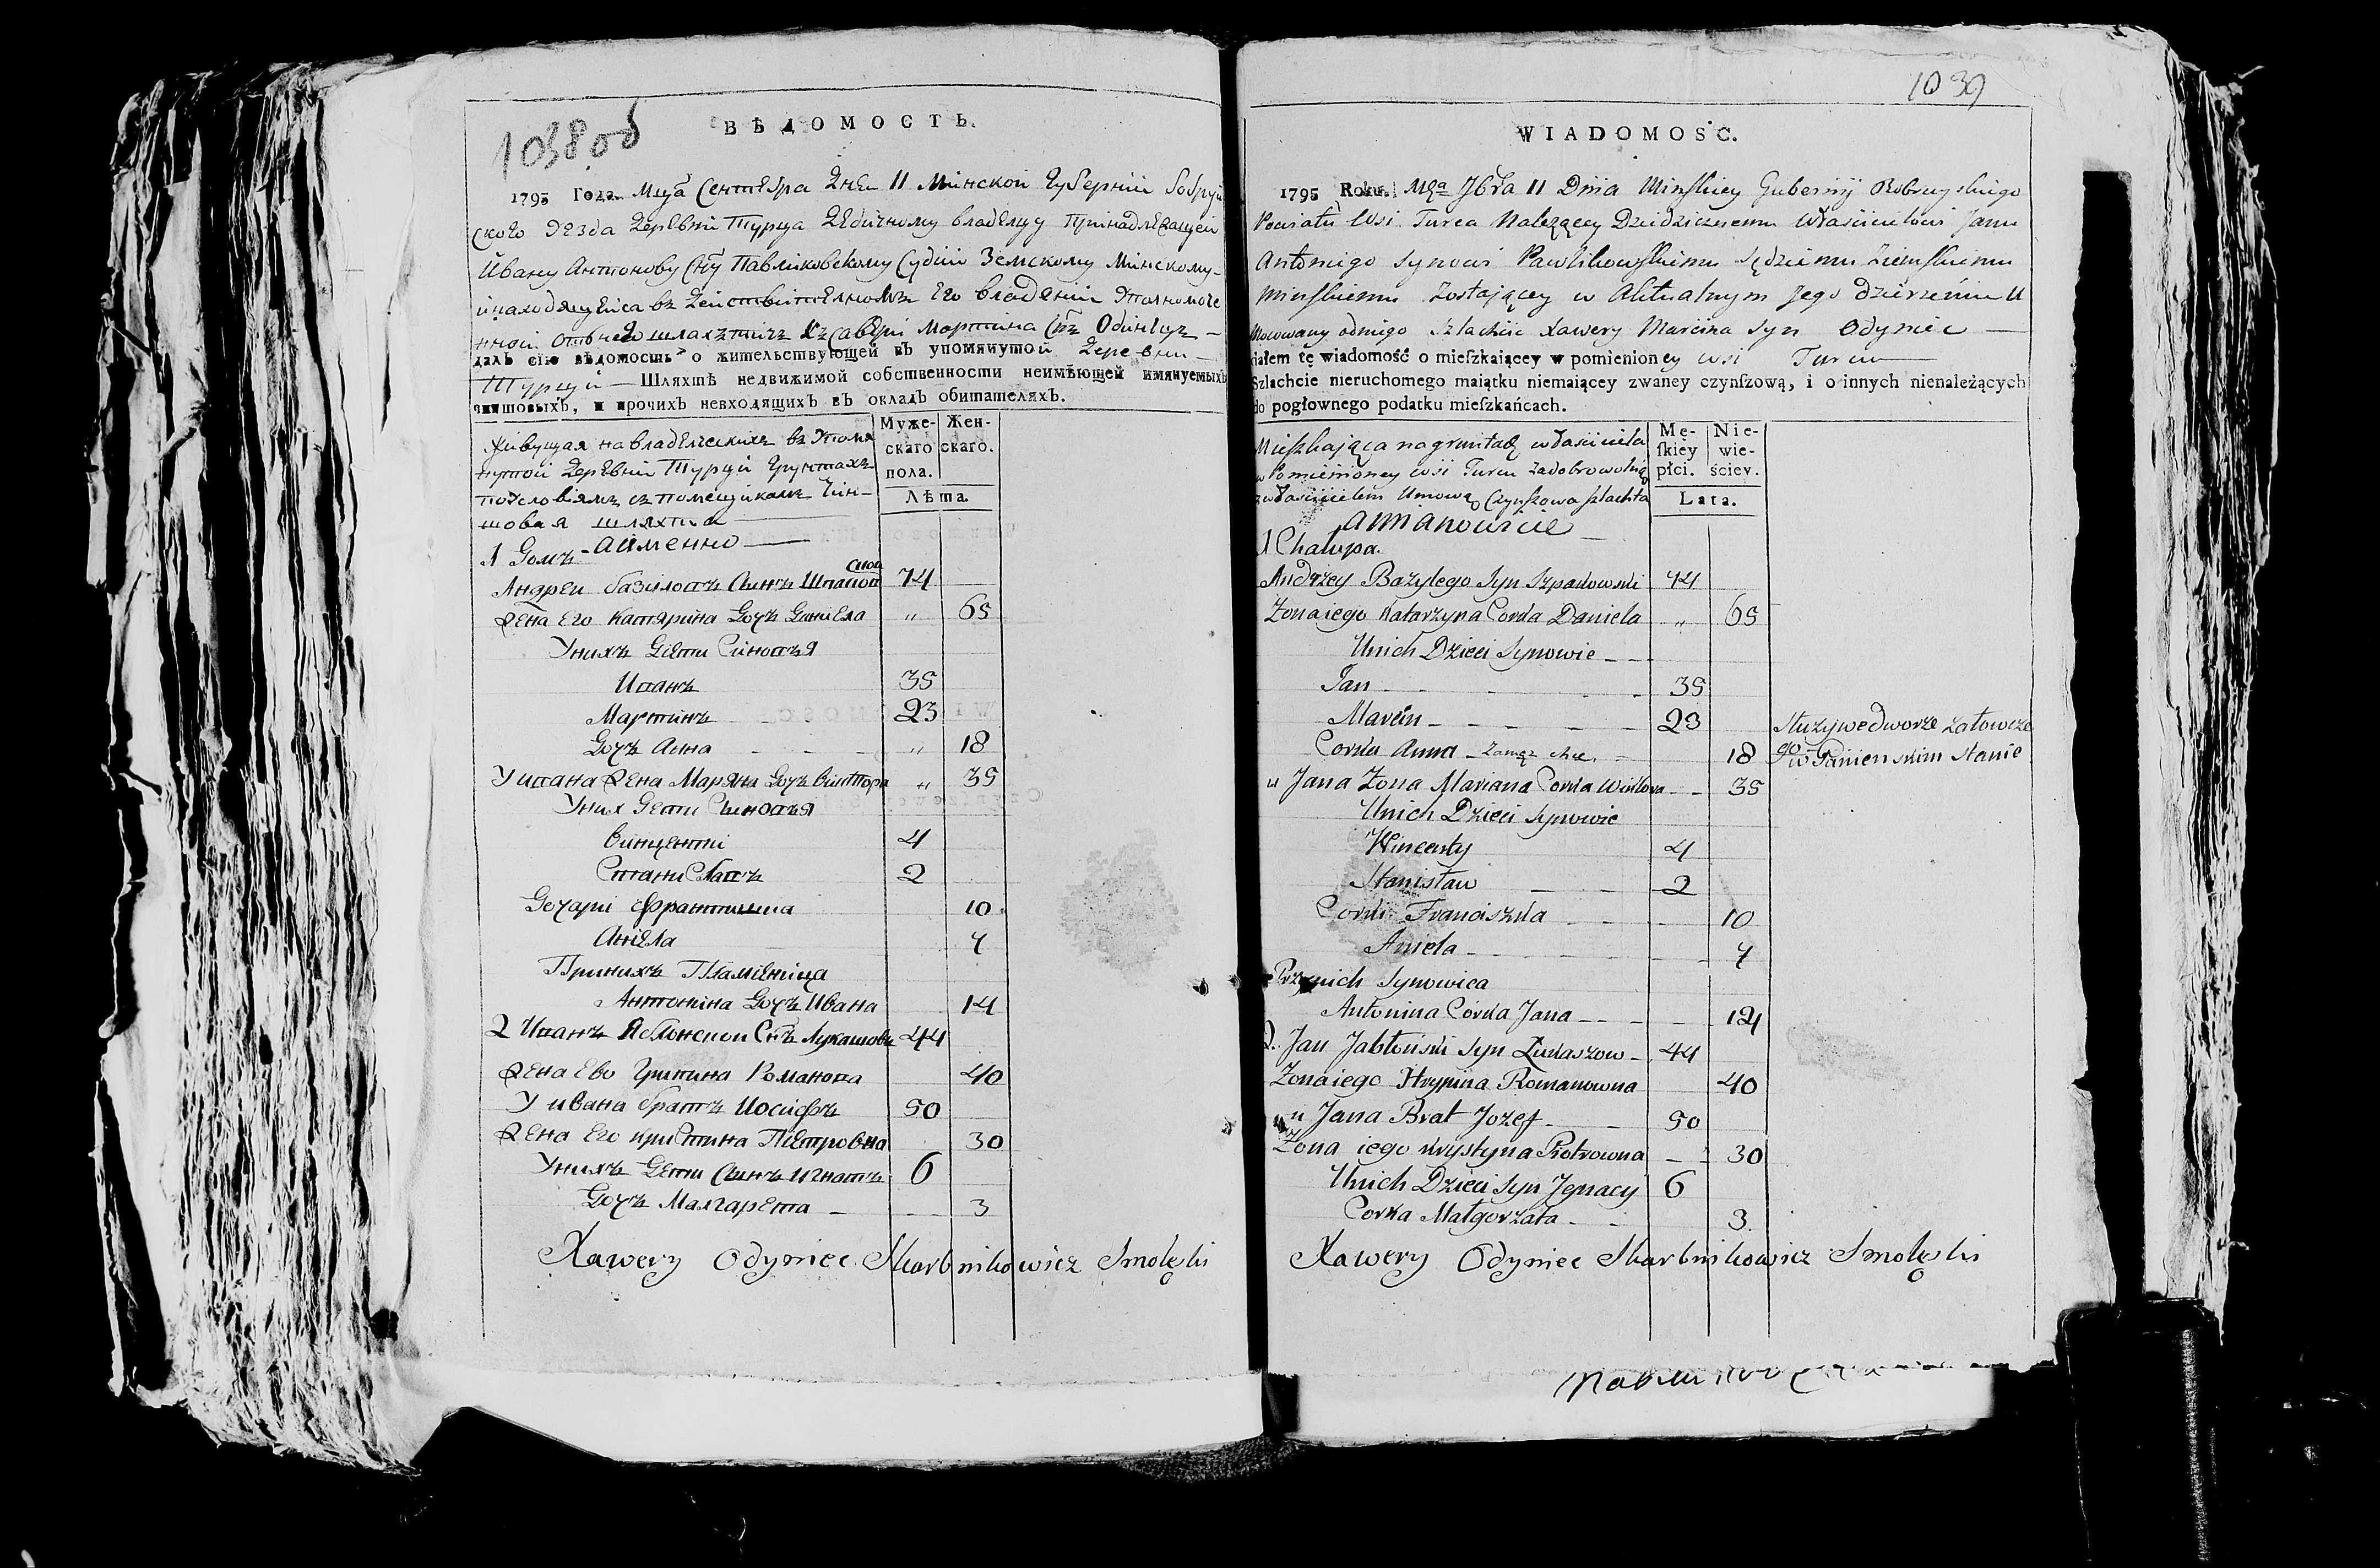 1038 об
ВѢДОМОСТЬ.
1795 Года Мца Сентебра Дня 11 Минской Губерніи Бобруй
ского Уезда Деревни Турца Дедичному владельцу Принадлежащей
Ивану Антонову Сну Павликовскому Судіи Земскому Минскому
и находящейса въ Действителномъ Его владеніи Уполномоче
ннои отъ него шлахтичъ Ксаверій Мартина Снъ Одинецъ —
далъ сію вѣдомость о жительствующей въ упомянутой Деревни —
Турцы — Шляхтѣ недвижимой собственности неимѣющей имянуемыхъ
чиншовыхъ, и прочихъ невходящихъ въ окладъ обитателяхъ.
Живущая на владелческихъ въ Упомя
нутой Деревни Турцы Грунтахъ
по Условіямъ съ помещикамъ Чин-
шовая шляхта
Муже-
скаго
пола.
Жен-
скаго.
Лѣта.
1 Домъ - а именно —
Андреи Базиловъ Сынъ Шпаков
ской 74
Жена Его Катярина Дочъ Даниела " 65
У нихъ Дети Сыновья
Иванъ 35
Мартинъ 23
Дочъ Анна " 18
У Ивана Жена Маряна Дочъ Виктора " 35
У них Дети Сыновья
Винценти 4
Станиславъ 2
Дочари Франтишка 10
Аниела 7
При нихъ Племеница
Антонина Дочъ Ивана 14
2 Иванъ Яблонской Снъ Лукашовъ 44
Жена Ево Грипина Романова 40
У Ивана братъ Иосифъ 50
Жена Его Кристина Петровна 30
У нихъ Дети Сынъ Игнатъ 6
Дочъ Малгарета — 3
Xawery Odyniec Skarbnikowicz Smolęski
1039
WIADOMOSC.
1795 Roku. Mca 7bra 11 Dnia Minskiey Gubernij Bobruyskiego
Powiatu Wsi Turca Nalezącey Dziedzicznemu Właścicielowi Janu
Antoniego Synowi Pawlikowskiemu Sędziemu Ziemskiemu
Minskiemu Zostającey w Aktualnym Jego dzierzeniu U
Mocowany od niego Szlachcic Xawery Marcina Syn Odyniec —
dałem tę wiadomość o mieſzkaiącey w pomienioney wsi Turcu
Szlachcie nieruchomego maiątku niemaiącey zwaney czynſzową, i o innych nienależących
do pogłownego podatku mieſzkańcach.
Mieszkająca na gruntach właściciela
w Pomienioney wsi Turcu za dobrowolną
z właścicielem Umową Czynszowa szlachta
a mianowicie
Mę-
ſkiey
płci.
Nie-
wie-
ściey.
Lata.
1 Chałupa.
Andrzey Bazylego Syn Szpakowski 74
Zona iego Katarzyna Corka Daniela " 65
U nich Dzieci Synowie
Jan 35
Marcin 23 Służy we dworze załowcze
go
Corka Anna - 18 w Panienskim Stanie
u Jana Zona Mariana Corka Wiktora 35
U nich Dzieci Synowie
Wincenty 4
Stanisław 2
Corki Franciszka 10
Aniela 7
Przy nich Synowica
Antonina Córka Jana 14
2. Jan Jabłoński Syn Łukaszow 44
Zona iego Hrypina Romanowna 40
u Jana Brat Jozef 50
Zona iego Krystyna Piotrowna 30
U nich Dzieci Syn Jgnacy 6
Corka Małgorzata 3
Xawery Odyniec Skarbnikowicz Smolęski